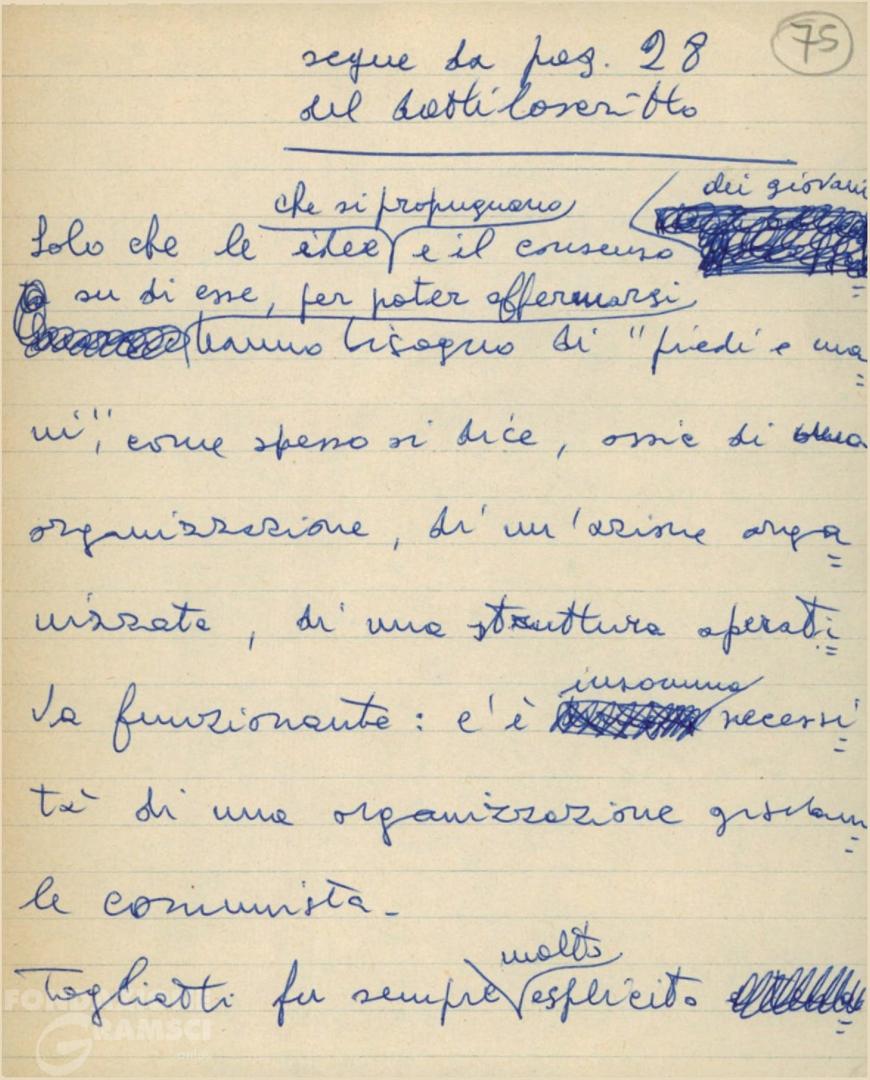 75
segue da pag. 28
del dattiloscritto
che si propugnano dei giovani
Solo che le idee e il consenso
su di esse, per poter affermarsi
hanno bisogno di "piedi e ma=
ni", come spesso si dice, ossia di una
organizzazione, di un'azione orga=
nizzata, di una struttura operati=
va funzionante: c'è insomma necessi=
tà di una organizzazione giovani=
le comunista.
molto
Togliatti fu sempre esplicito
FONDAZIONE
GRAMSCI